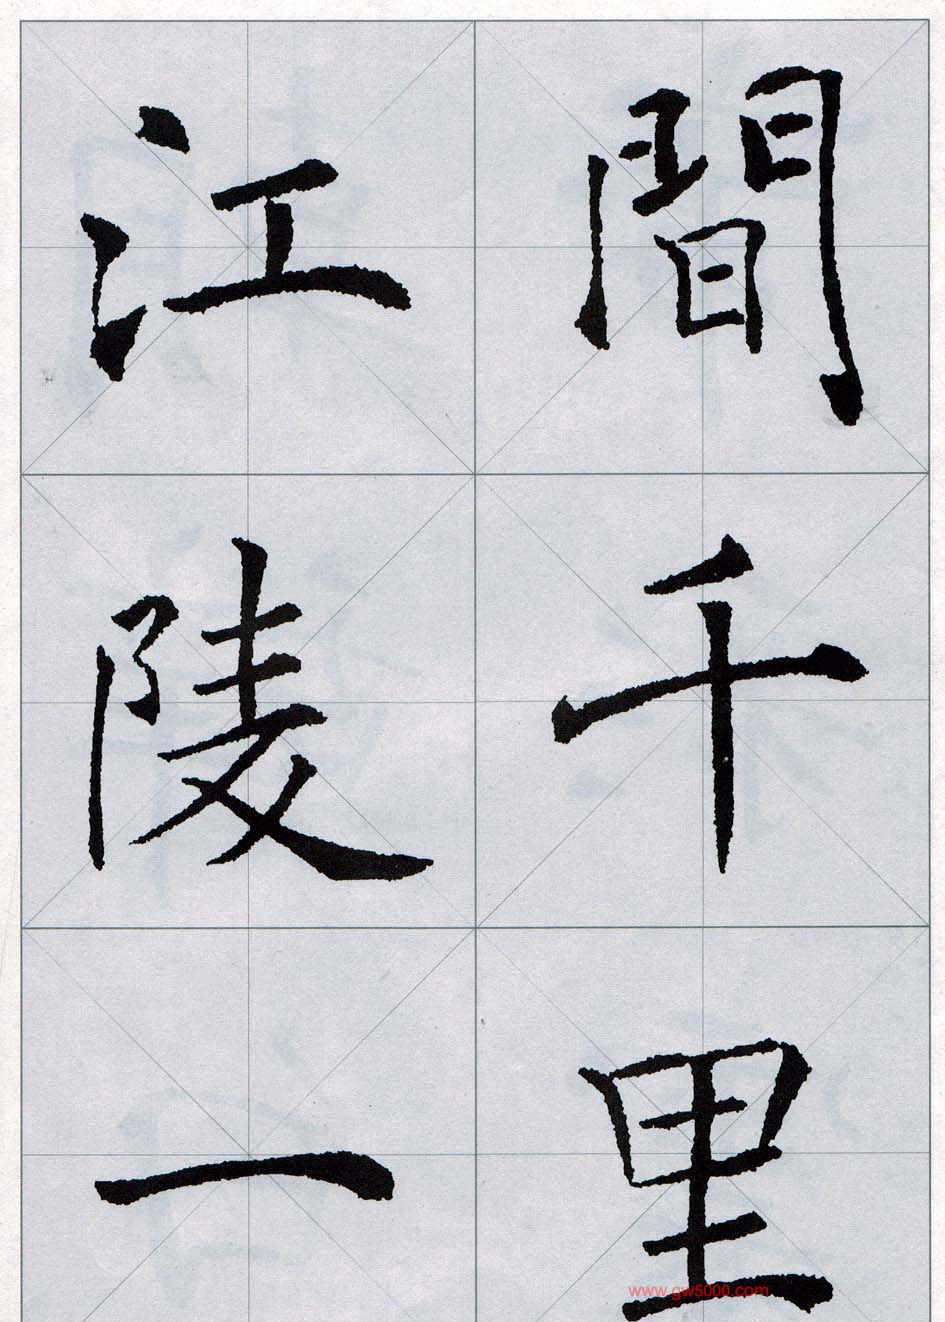 間千里
江陵一
www.gw5000.com